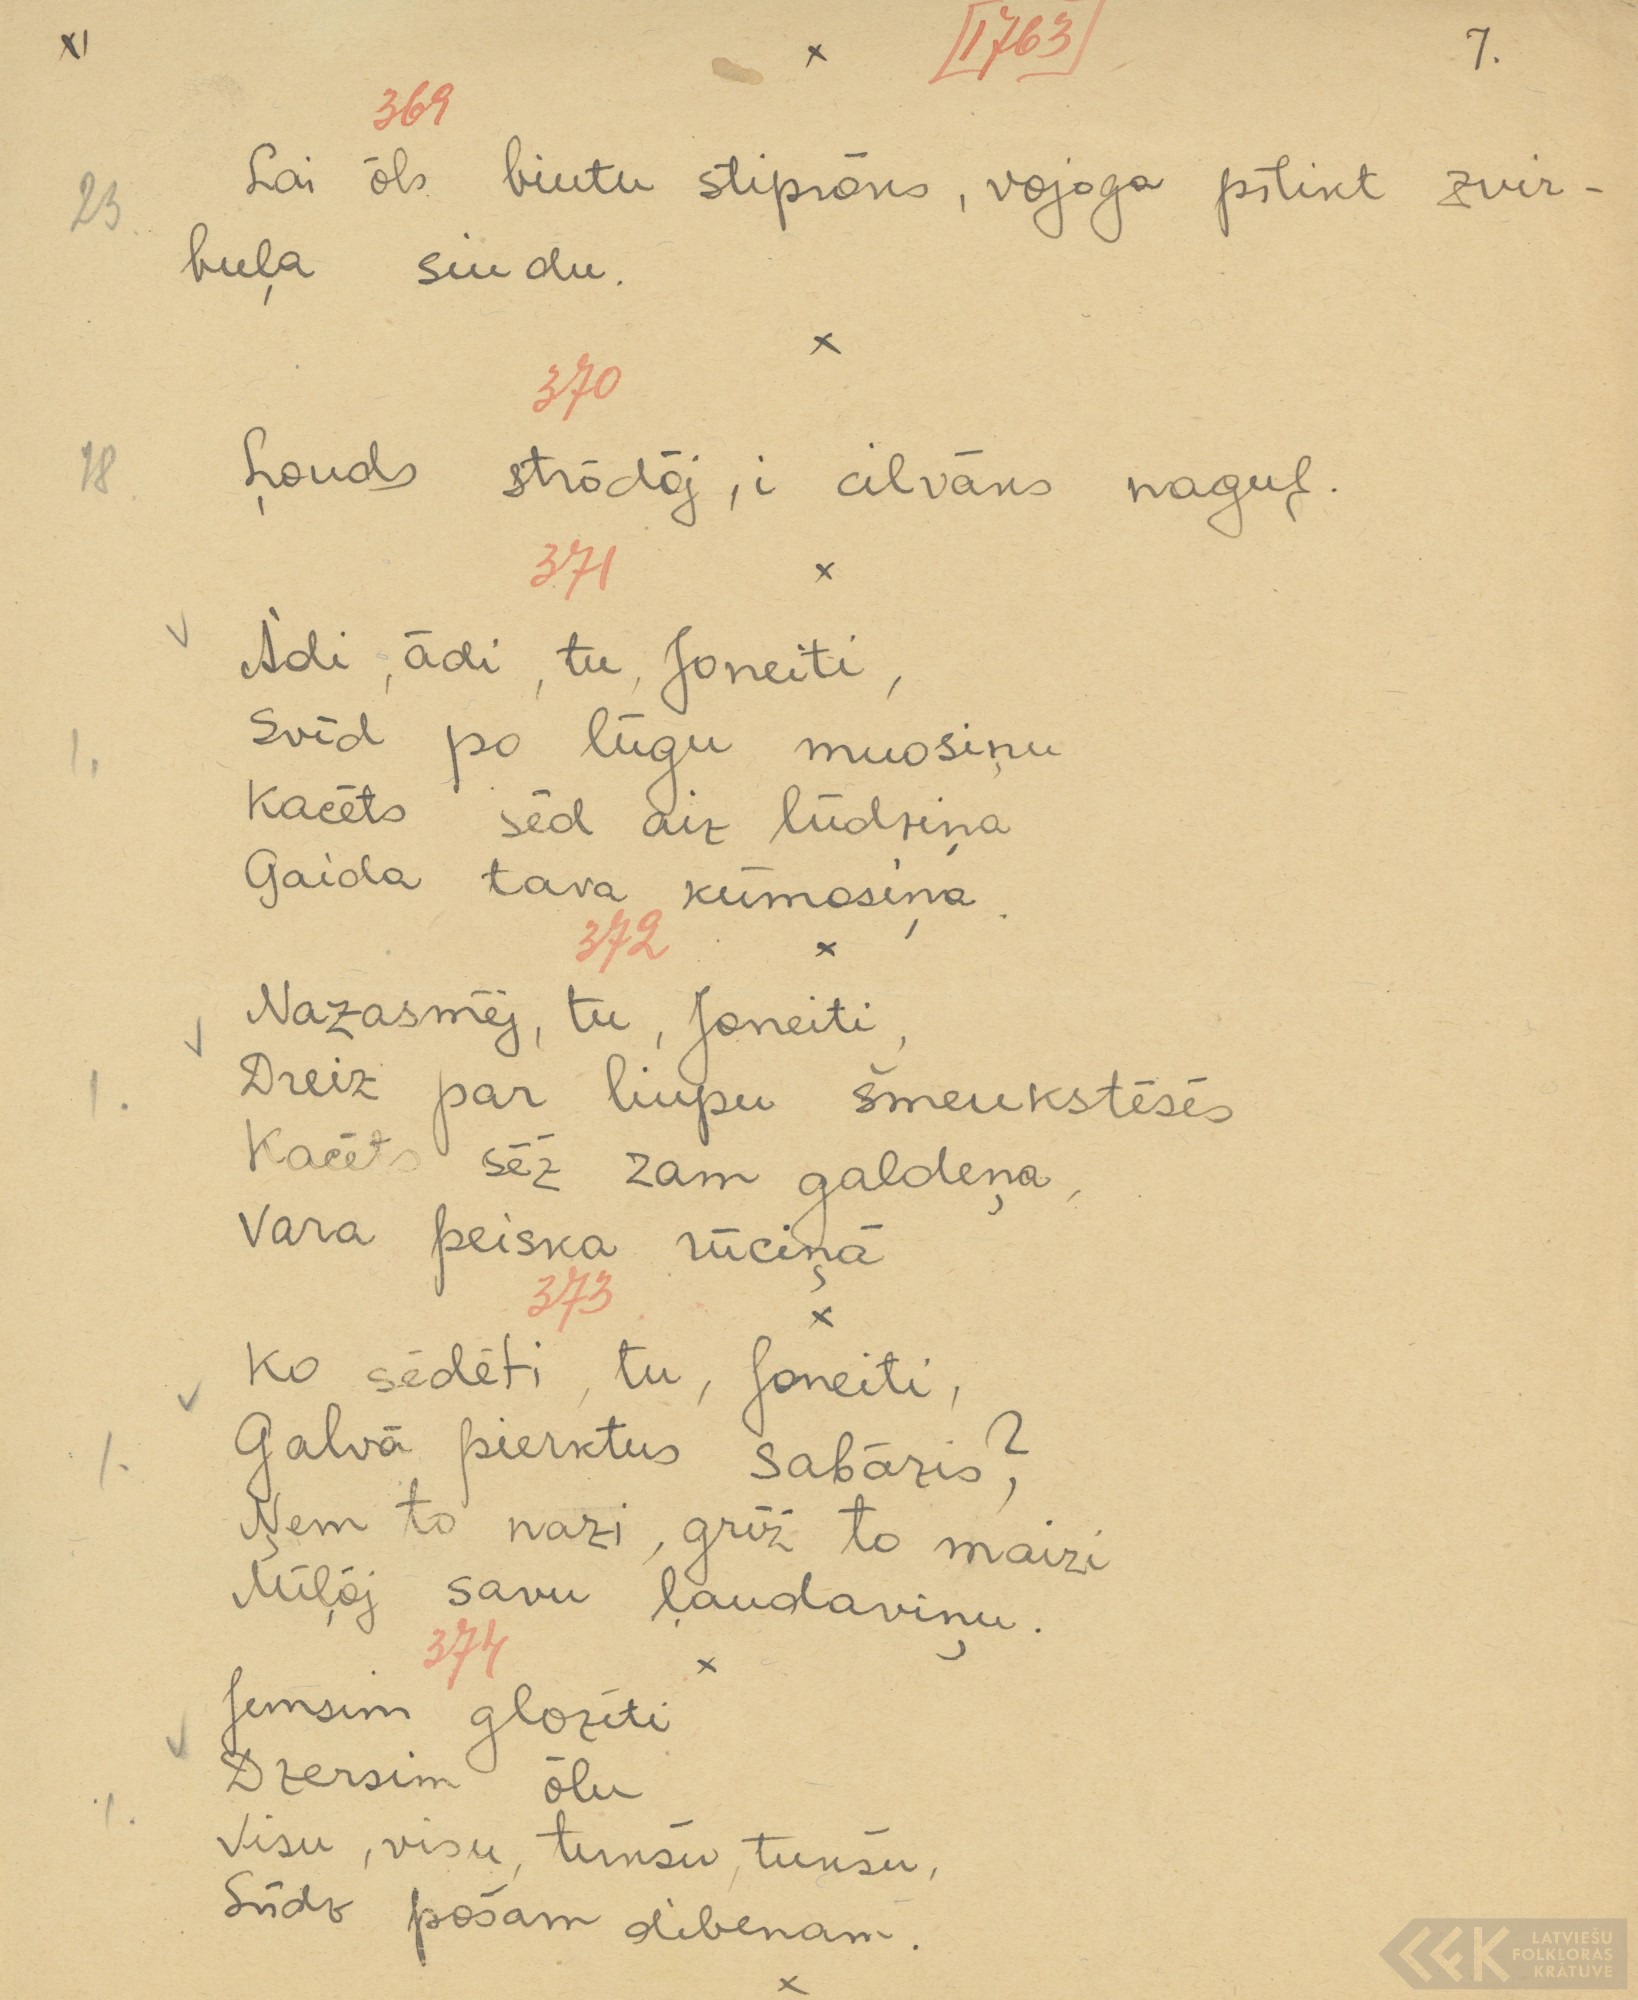 XI x [1763] 7.
369
23. Lai ōls biutu stiprōks, vojoga pītikt zvir-
buļa siudu.
x
370
18. Ļouds strōdōj, i cilvāks naguļ.
371 x
Ādi, ādi, tu, Joneiti,
Svīd po lūgu muosiņu
1.
Kacēts sēd aiz lūdziņa
Gaida tava kūmosiņa.
372 x
Nazasmēj, tu, Joneiti,
Dreiz par liupu šmeukstēsēs
1.
Kacēts sēž zam galdeņa,
Vara peiska rūciņā
373 x
Ko sēdēti, tu, Joneiti,
Galvā pierktus sabāzis?
1.
Ņem to nazi, grīž to maizi
Mīļōj savu ļaudaviņu.
374 x
Jemsim glozīti
Dzersim ōlu
1.
Visu, visu, tukšu, tukšu,
Lūdz pošam dibenam.
x
LATVIEŠU
FOLKLORAS
KRĀTUVE